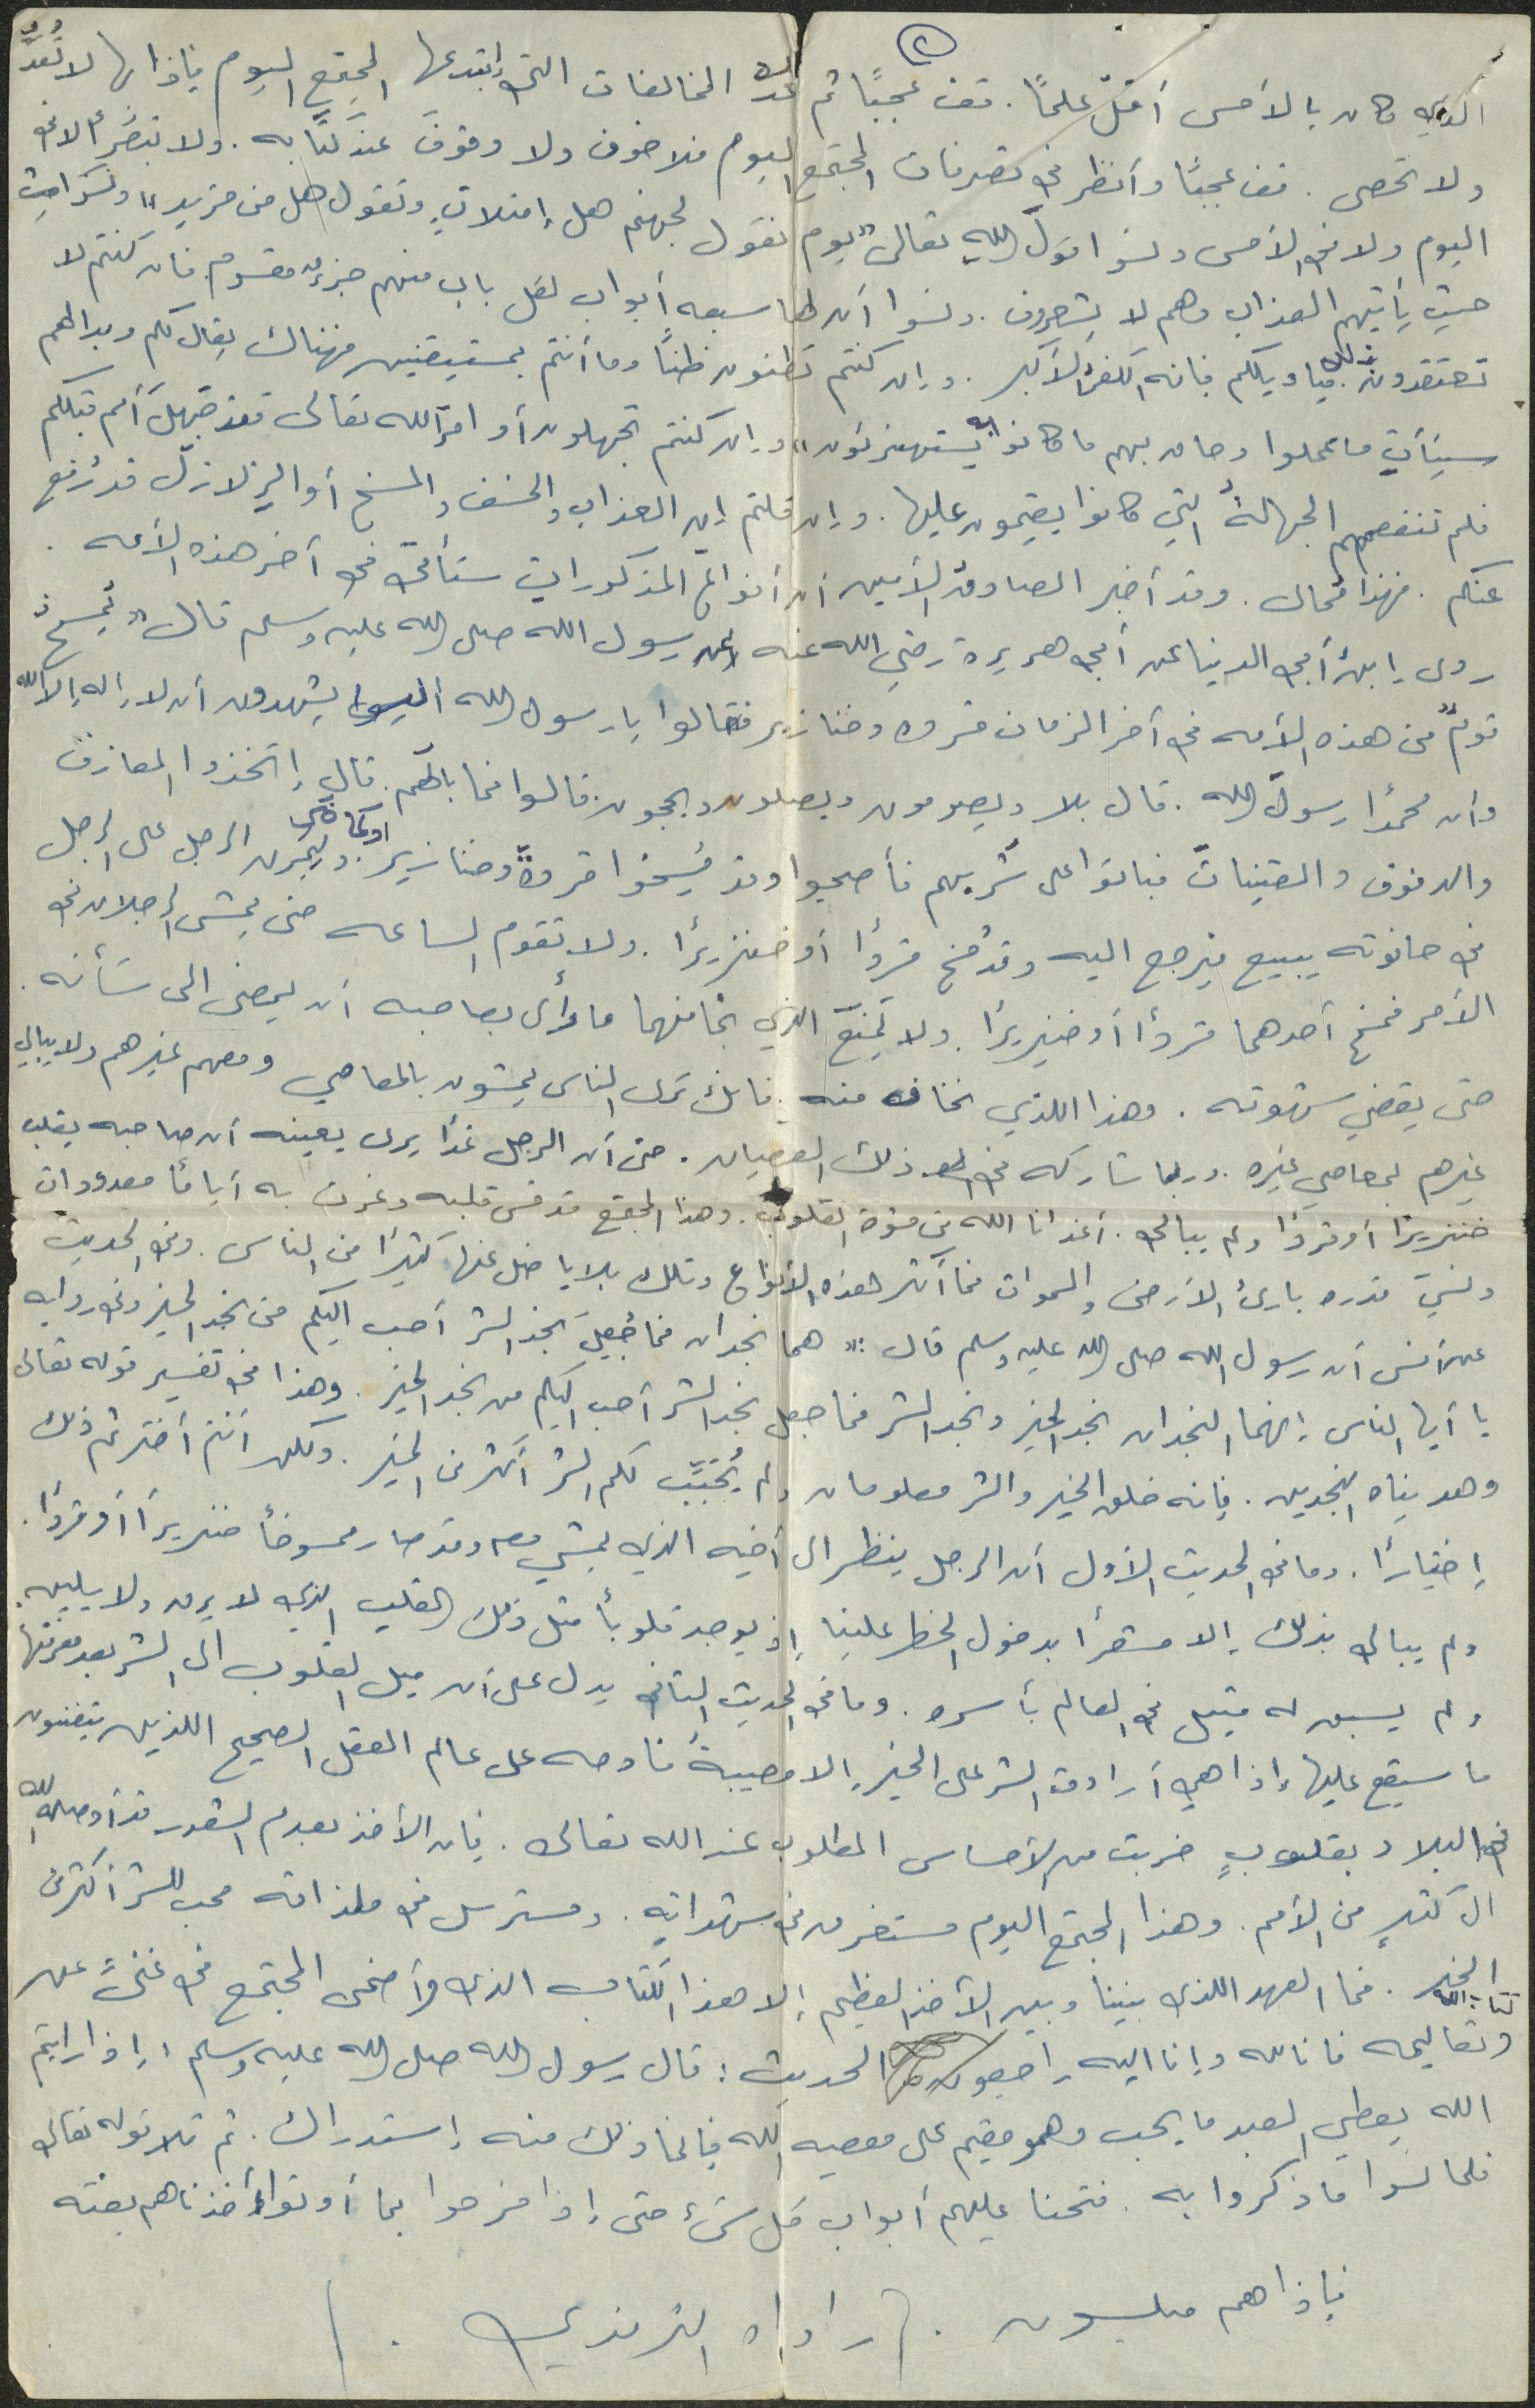 ٢
الذي كان بالأمس أقلّ علماً. تقف عجبًا ثم عدد المخالفات التي إبتدعها المجتمع اليوم فإذا بها لا تُعدُّ
ولا تحصى. تقف عجبًا وأنظر في تصرفات المجتمع اليوم فلا خوف ولا وقوفَ عند كتابه. ولا تبصُّر لا في
اليوم ولا في الأمس ونسوا قولَ الله تعالى "يوم نقول لجهنم هل إمتلأتِ وتقول هل من مزيد" ونسكرات
حيث يأتيهم العذاب وهم لا يشعرون. ونسوا أن لها سبعه أبواب لكل باب منهم جزء مقسوم فان كنتم لا
تعتقدون ذلك فيا ويلكم فإنه الكفر الأكبر. وإن كنتم تظنون ظنًا وما أنتم بمستيقنين فهناك يقال لكم وبدالهم
سيئاتِ ما عملوا وحاق بهم ما كانوا به يستهزئون" وإن كنتم تجهلون أوامرَ الله تعالى فقد جَهِلَ أمم قبلكم
فلم تنفعهم الجهالةُ التي كانوا يقيمون عليها. وإن قلتم إن العذاب والخسف والمسخ أو الزلازلَ قد رُفع
عنكم. فهذا مُحال. وقد أخبر الصادق الأمين أن أنواعَ المذكورات ستأتي في آخر هذه الأمه.
روى إبنُ أبي الدنيا عن أبي هريرة رضي الله عنه عن رسول الله صلى الله عليه وسلم قال "يُمسخ
قومٌ من هذه الأمه في آخر الزمان قروه وخنازير فقالوا يا رسول الله اليسوا يشهدون أن لا إله إلا الله
وأن محمدًا رسولُ الله. قال بلا ويصومون ويصلون ويحجون. قالوا فما بالهم. قال إتخذوا المعازفَ
والدفوف والقيناتَ فباتوا على شُربهم فأصبحوا وقد مُسخوا قردةً وخنازير. أو كما قال وليمرن الرجل على الرجل
في حانوته يبيع فيرجع اليه وقد مُسخ قردًا أو خنزيرًا. ولا تقوم الساعه حتى يمشى الرجلان في
الأمر فمسخ أحدهما قردًا أو خنزيرًا. ولا يمنعَ الذي نجا منهما ما رأى بصاحبه أن يمضى الى شأنه.
حتى يقضي شهوته. وهذا اللذي نخاف منه. فانك ترى الناس يمشون بالمعاصي ومعهم غيرهم ولا يبالي
غيرهم بمعاصي غيره. وربما شاركه في ذلك العصيان. حتى أن الرجل غدًا يرى بعينه أن صاحبه يقلب
خنزيرًا أو قردًا ولم يبالي. أعذانا الله من قسوة القلوب. وهذا المجتمع قد قسى قلبه وغرت به أيامًا معدودات
ونسيَ قدره بارئُ الأرض والسموات فما أكثر هذه الأنواع وتلك بلايا ضل عنها كثيرًا من الناس. وفي الحديث
عن أنس أن رسول الله صلى الله عليه وسلم قال: "هما نجدان فما جُعِلَ نجد الشر أحب إليكم من نجد الخير وفي روايه
يا أيها الناس إنهما النجدان نجد الخير ونجد الشر فما جعل نجد الشر أحب اليكم من نجد الخير. وهذا في تفسير قوله تعالى
وهديناه النجدين. فإنه خلق الخير والشر معلومان ولم يُحَبَّب لكم الشر أكثر من الخير. ولكن أنتم أخترتم ذلك
إختيارًا. وما في الحديث الأول أن الرجل ينظر الى أخيه الذي يمشي معه وقد صار ممسوخاً خنزيراً أو قردًا.
ولم يبالى بذلك إلا مشعرًا بدخول الخطر علينا إذ يوجد قلوبأ مثل ذلك القلب الذي لا يرق ولا يلين.
ولم يسبق له مثيل في العالم بأسره. وما في الحديث الثاني يدل على أن ميل القلوب الى الشر بعد معرفتها
ما سيقع عليها إذا هي أرادت الشر على الخير إلا مصيبةً فادحه على عالم العقل الصحيح اللذين يتغنون
في البلاد بقلوبٍ خربت من الأحساس المطلوب عند الله تعالى. فإن الأخذ بعدم الشعور قد أوصله الله
الى كثير من الأمم. وهذا المجتمع اليوم مستغرق في شهواته. ومسترسل في ملذاته محب للشر أكثر من
الخير. فما العهد اللذي بيننا وبين الأخذ العظيم إلا هذا الكتاب الذي أضحى المجتمع في غنىً عن
كتاب الله وتعاليمه فانا لله وإنا اليه راجعون الحديث: قال رسول الله صلى الله عليه وسلم: إذا رايتم
الله يعطي العبد ما يحب وهو مقيم على معصيه الله فإنما ذلك منه إستدراك. ثم تلا قوله تعالى
فلما نسوا ما ذكروا به. فتحنا عليهم أبواب كل شيء حتى إذا فرحوا بما أوتوا أخذناهم بغته
فإذا هم مبلسون. (راواه الترمذي.)